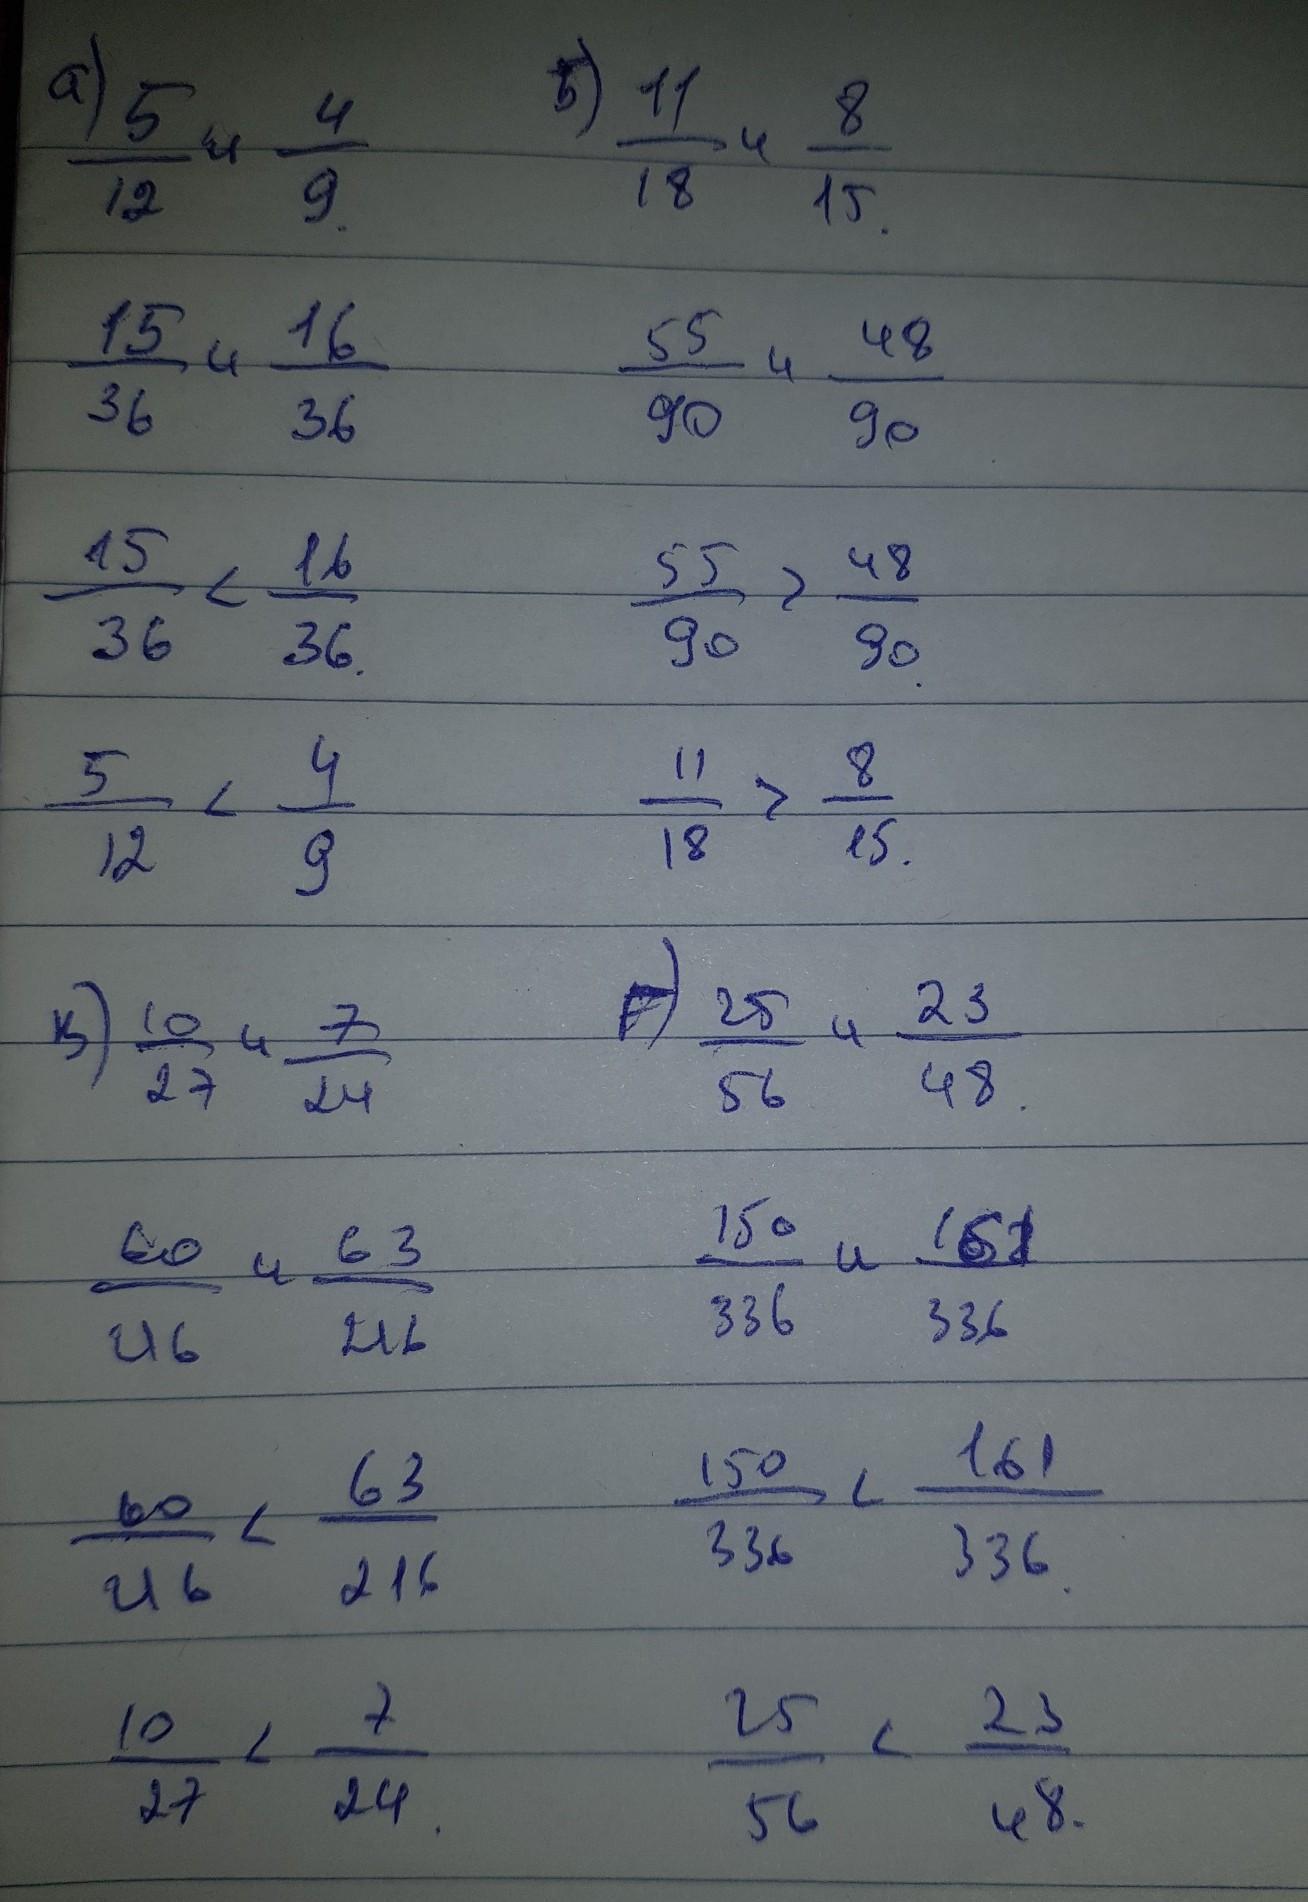 а) 5/12 и 4/9.
15/36 и 16/36
15/36 < 16/36.
5/12 < 4/9
Б) 11/18 и 8/15.
55/90 и 48/90
55/90 > 48/90.
11/18 > 8/15.
в) 10/27 и 7/24
60/216 и 63/216
60/216 < 63/216
10/27 < 7/24.
Г) 25/56 и 23/48.
150/336 и 161/336
150/336 < 161/336.
25/56 < 23/48.